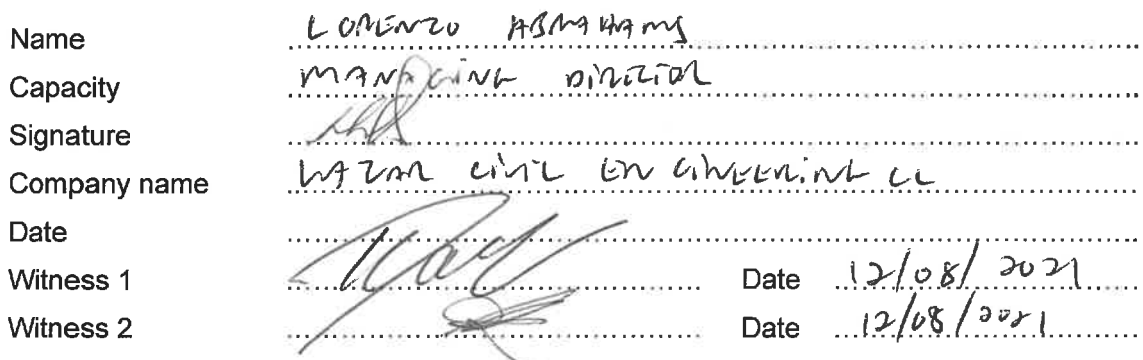 Name LORENZO ABRAHAMS
Capacity MANAGING DIRECTOR
Signature
Company name CIVIL ENGINEERING CC
Date
Witness 1 Date 12/08/2021
Witness 2 Date 12/08/2021